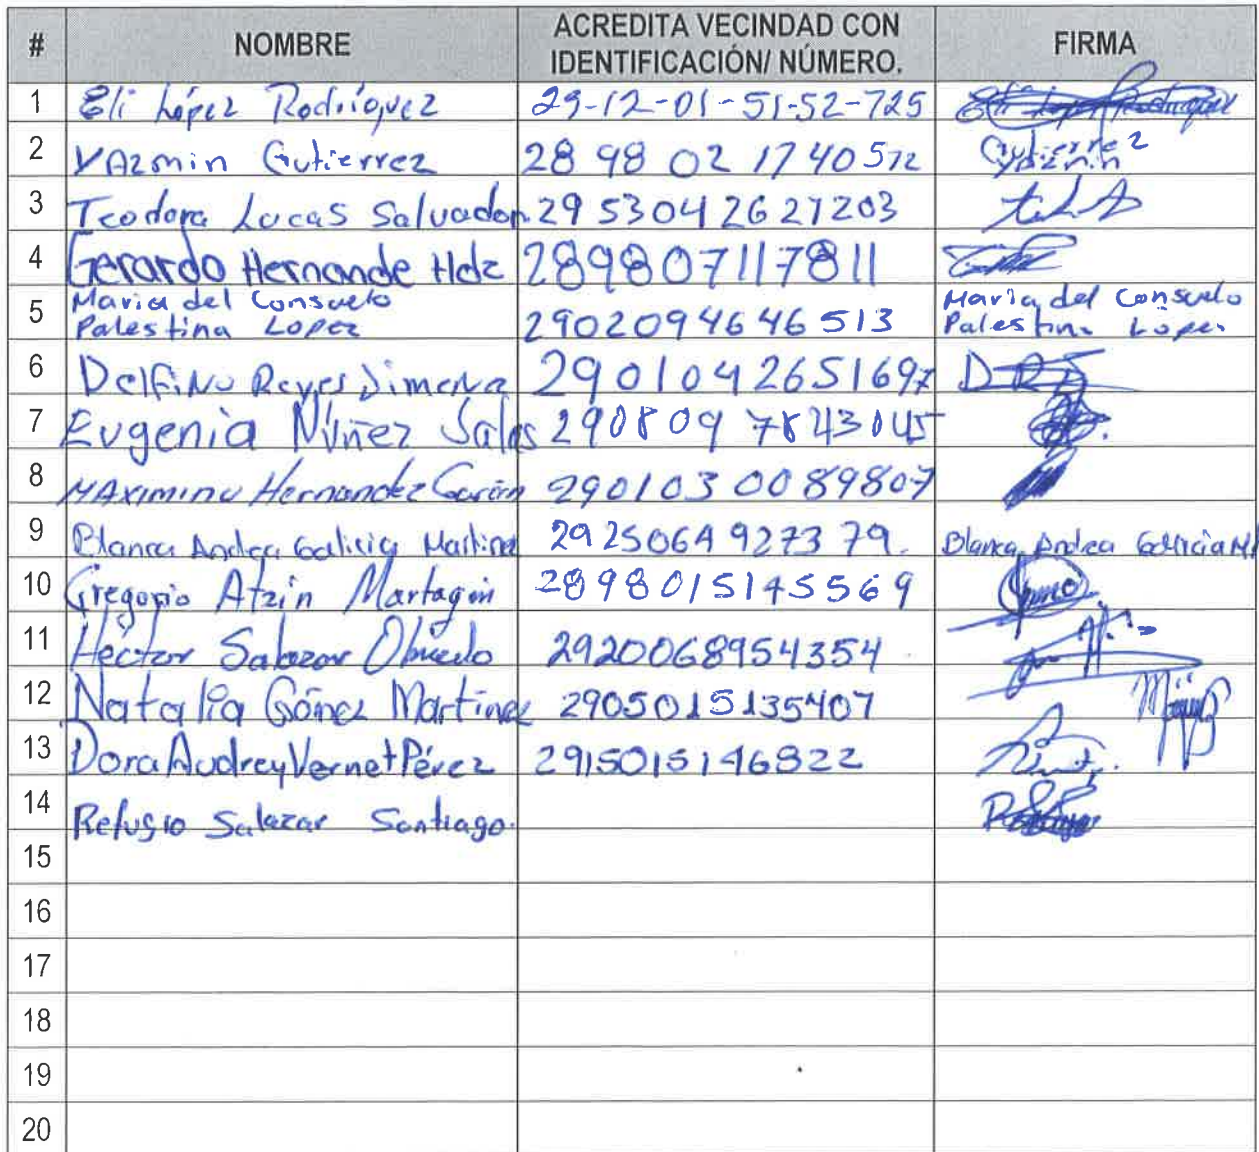 # NOMBRE ACREDITA VECINDAD CON IDENTIFICACIÓN/ NÚMERO. FIRMA
1 Eli López Rodríguez 29-12-01-51-52-725
2 YAzmin Gutierrez 28 98 02 1740572 Gutierrez Yazmin
3 Teodora Lucas Salvador 2953042627203
4 Gerardo Hernande Hdz 2898071117811
5 Maria del Consuelo Palestina Lopez 2902094646513 Maria del Consuelo Palestina Lopez
6 Delfino Reyes Jimena 2901042651697
7 Eugenia Núñez Salas 290809 7843045
8 MAximino Hernandez Garcia 290103 0089807
9 Blanca Andrea Galicia Martinez 2925064927379. Blanca Andrea Galicia M
10 Gregorio Atzin Martagon 2898015145569
11 Héctor Salazar Olmedo 2920068954354
12 Natalia Gómez Martinez 2905015135407
13 Dora Audrey Vernet Pérez 2915015146822
14 Refugio Salazar Santiago.
15
16
17
18
19
20